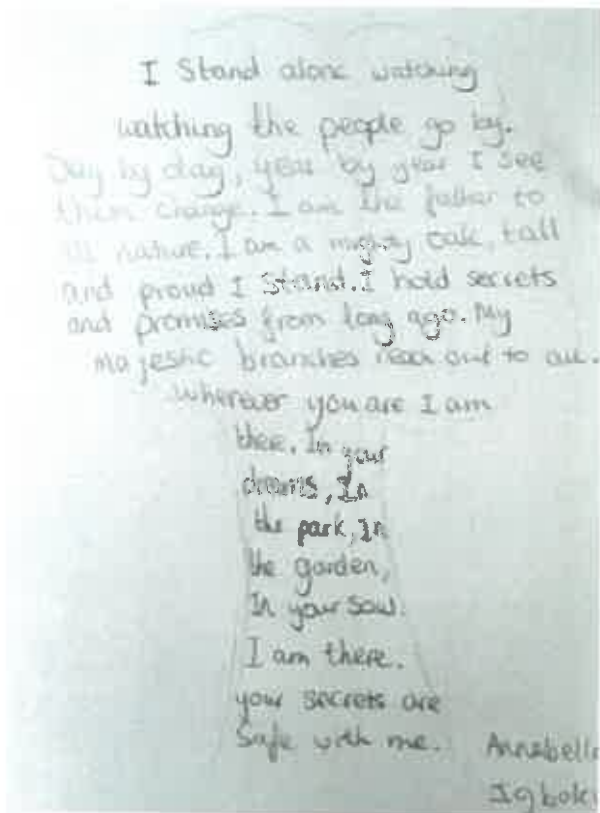 I Stand alone watching
watching the people go by.
Day by day, year by year I see
them change. I am the father to
all nature. I am a mighty oak, tall
and proud I stand. I hold secrets
and promises from long ago. My
majestic branches reach out to all.
wherever you are I am
there. In your
dreams, In
the park, In
the garden,
In your soul.
I am there.
your secrets are
Safe with me.
Annabelle
Igbok